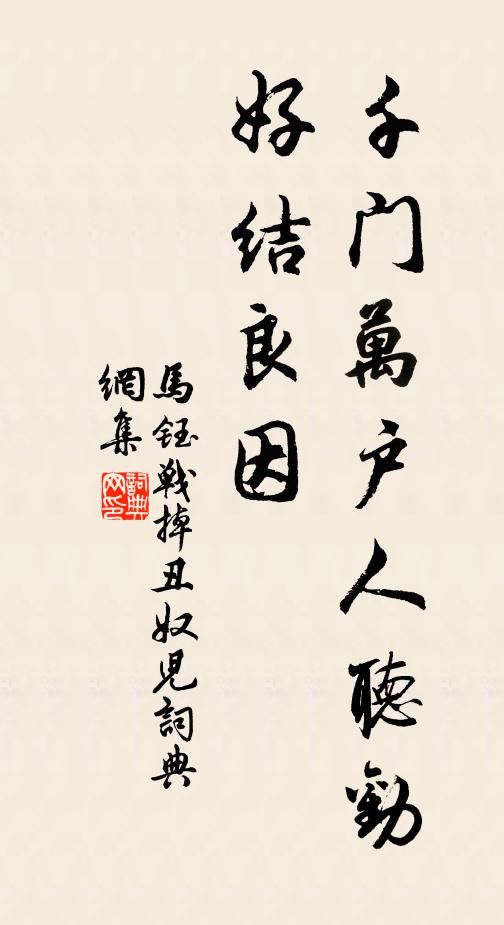 千门萬户人聽勸
好结良因
馬鈺戰掉丑奴兒詞典
網集
詞典网印